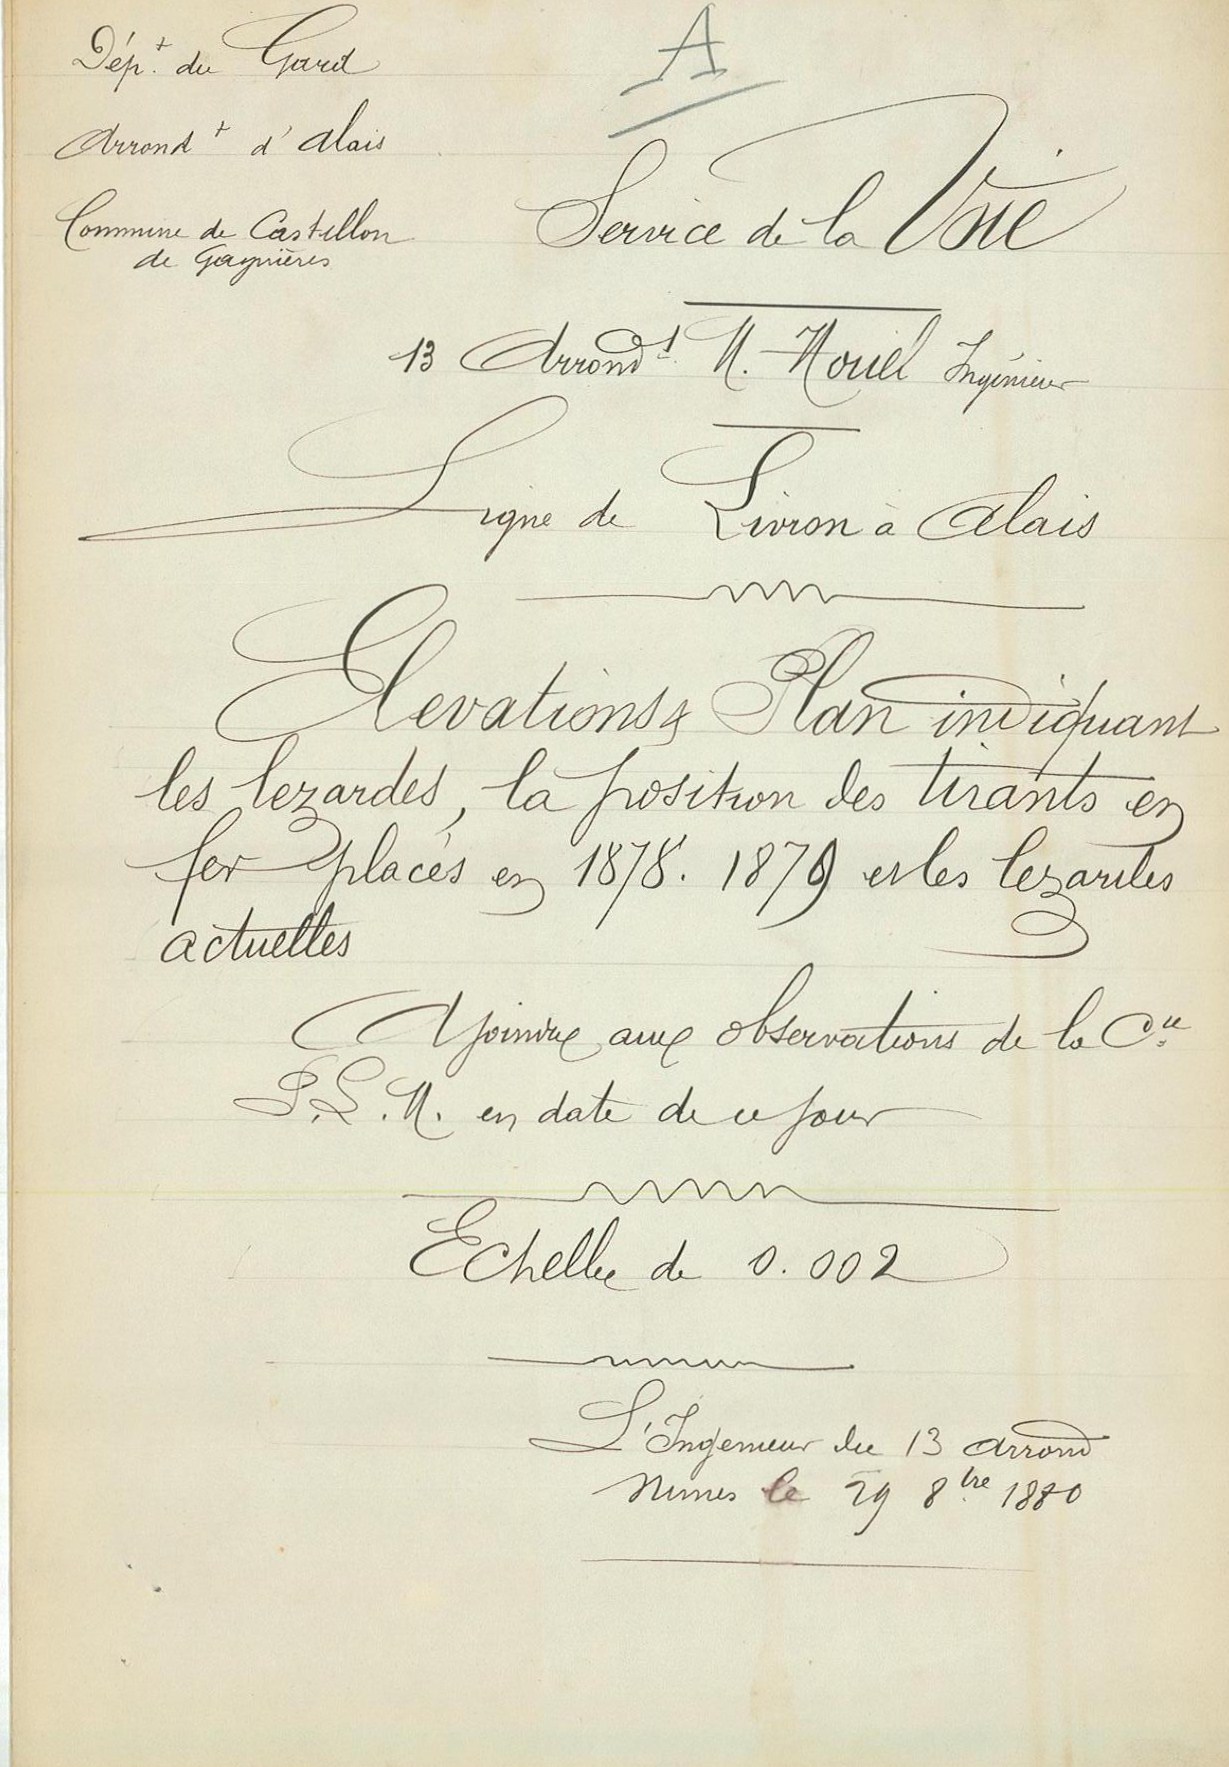 A
Dépt. du Gard
Arrondt d'Alais
Commune de Castillon
de Gagnières
Service de la Voie
13 Arrondt. M. Houel Ingénieur
Ligne de Livron à Alais
Elevations & Plan indiquant
les lezardes, la position des tirants en
fer placés en 1878. 1879 et les lezardes
actuelles
A joindre aux observations de la Cie
P.L.M. en date de ce jour
Echelle de 0.002
L'Ingenieur du 13 arrond
Nimes le 29 8bre 1880